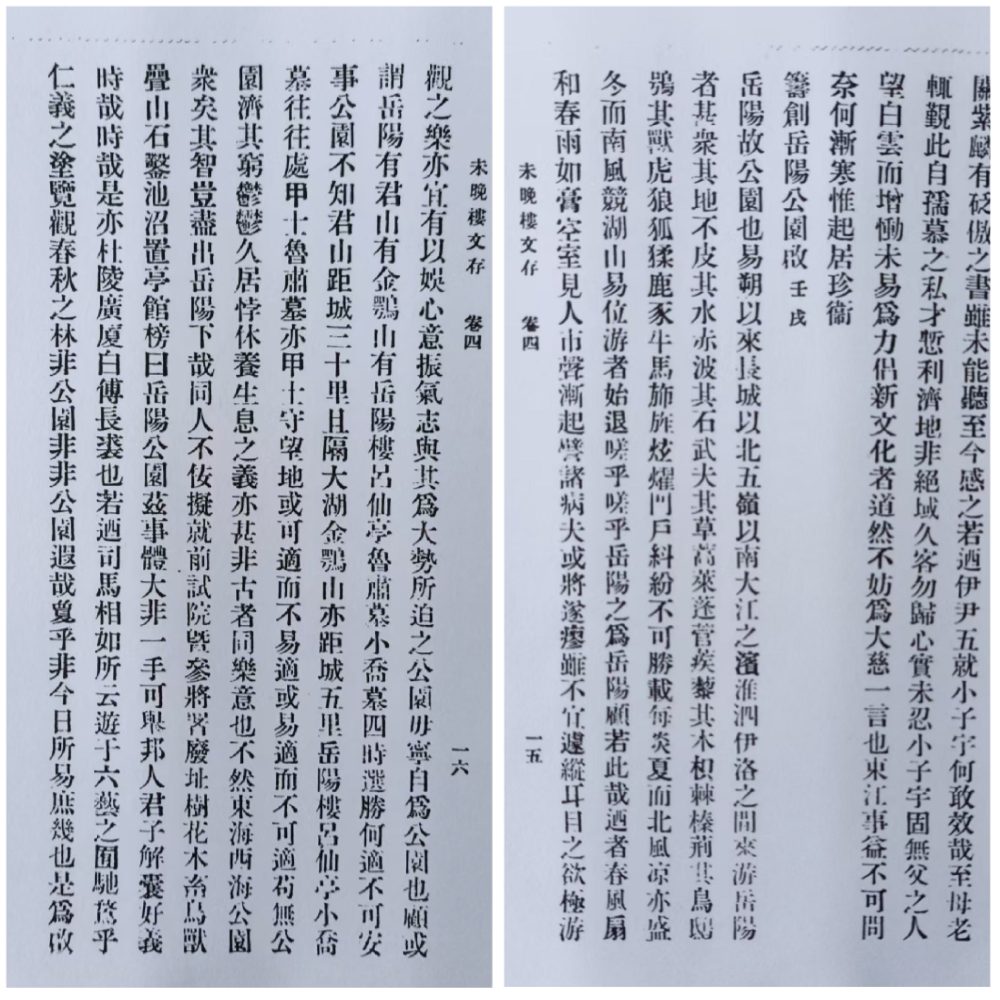 關紫驎有砭傲之書雖未能聽至今感之若迺伊尹五就小子宇何敢效哉至母老
輒覲此自孺慕之私才慙利濟地非絕域久客勿歸心實未忍小子宇固無父之人
望白雲而增慟未易爲力倡新文化者道然不妨爲大慈一言也東江事益不可問
奈何漸寒惟起居珍衞
籌創岳陽公園啟 壬戌
岳陽故公園也易朔以來長城以北五嶺以南大江之濱淮泗伊洛之間來游岳陽
者甚衆其地不皮其水赤波其石武夫其草蒿萊蓬菅蒺藜其木枳棘榛荊其鳥鴟
鴞其獸虎狼狐猱鹿豕牛馬斾旌炫燿門戶糾紛不可勝載每炎夏而北風凉亦盛
冬而南風競湖山易位游者始退嗟乎嗟乎岳陽之爲岳陽顧若此哉迺者春風扇
和春雨如膏空室見人市聲漸起譬諸病夫或將遂瘳雖不宜遽縱耳目之欲極游
未晚樓文存 卷四 一五
未晚樓文存 卷四 一六
觀之樂亦宜有以娛心意振氣志與其爲大勢所迫之公園毋寧自爲公園也顧或
謂岳陽有君山有金鶚山有岳陽樓呂仙亭魯肅墓小喬墓四時選勝何適不可安
事公園不知君山距城三十里且隔大湖金鶚山亦距城五里岳陽樓呂仙亭小喬
墓往往處甲士魯肅墓亦甲士守望地或可適而不易適或易適而不可適苟無公
園濟其窮鬱鬱久居悖休養生息之義亦甚非古者同樂意也不然東海西海公園
衆矣其智豈盡出岳陽下哉同人不佞擬就前試院曁參將署廢址樹花木畜鳥獸
疊山石鑿池沼置亭館榜曰岳陽公園茲事體大非一手可舉邦人君子解囊好義
時哉時哉是亦杜陵廣厦白傅長裘也若迺司馬相如所云遊于六藝之囿馳騖乎
仁義之塗覽觀春秋之林非公園非非公園遐哉敻乎非今日所易庶幾也是爲啟